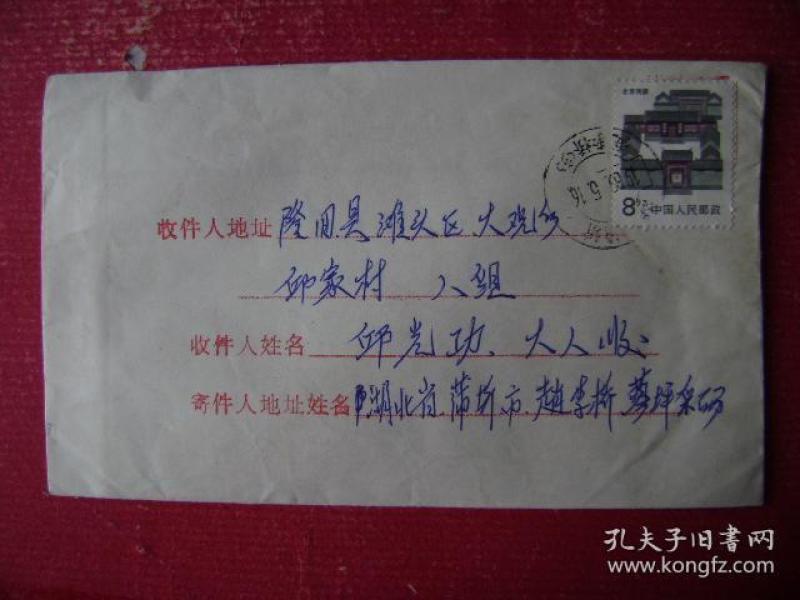 北京民居
8分 中国人民邮政
收件人地址 隆回县滩头区大观乡
邱家村 八组
收件人姓名 邱光功、大人收
寄件人地址姓名 湖北省、蒲圻市、赵李桥
孔夫子旧书网
www.kongfz.com